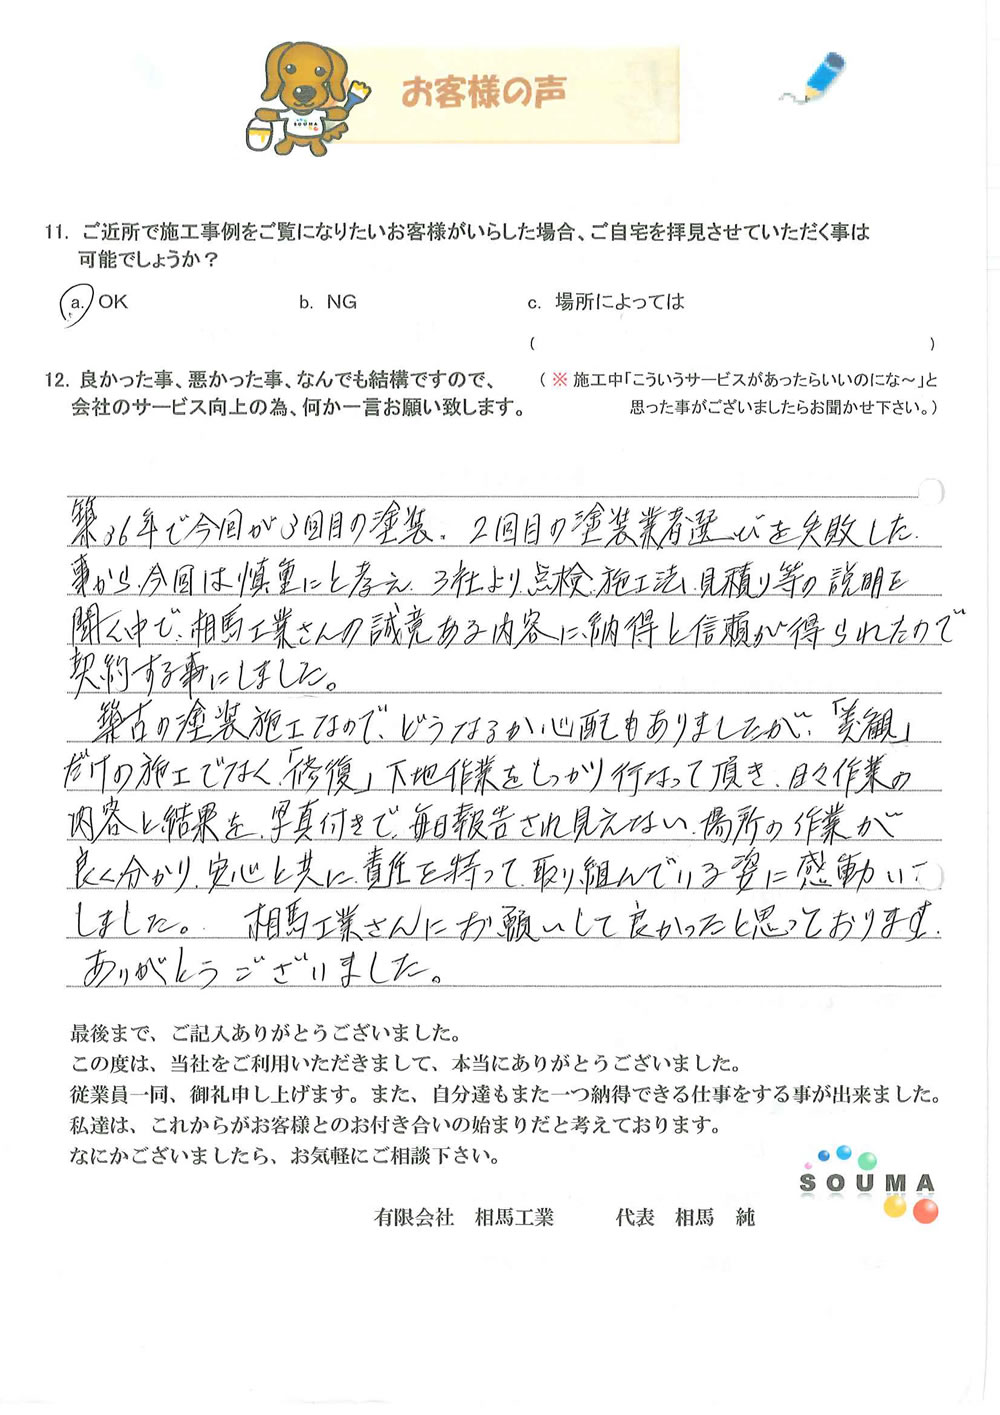 お客様の声
SOUMA
11. ご近所で施工事例をご覧になりたいお客様がいらした場合、ご自宅を拝見させていただく事は
可能でしょうか？
a. OK b. NG c. 場所によっては
( )
12. 良かった事、悪かった事、なんでも結構ですので、 (※ 施工中「こういうサービスがあったらいいのにな～」と
会社のサービス向上の為、何か一言お願い致します。 思った事がございましたらお聞かせ下さい。)
築36年で今回が3回目の塗装。2回目の塗装業者選びを失敗した
事から、今回は慎重にと考え、3社より点検、施工法、見積り等の説明を
聞く中で、相馬工業さんの誠意ある内容に、納得と信頼が得られたので
契約する事にしました。
築古の塗装施工なので、どうなるか心配もありましたが、「美観」
だけの施工でなく、「修復」下地作業をしっかり行なって頂き、日々作業の
内容と結果を、写真付きで、毎日報告され見えない場所の作業が
良く分かり、安心と共に、責任を持って、取り組んでいる姿に感動い
しました。 相馬工業さんにお願いして良かったと思っております。
ありがとうございました。
最後まで、ご記入ありがとうございました。
この度は、当社をご利用いただきまして、本当にありがとうございました。
従業員一同、御礼申し上げます。また、自分達もまた一つ納得できる仕事をする事が出来ました。
私達は、これからがお客様とのお付き合いの始まりだと考えております。
なにかございましたら、お気軽にご相談下さい。
SOUMA
有限会社 相馬工業 代表 相馬 純